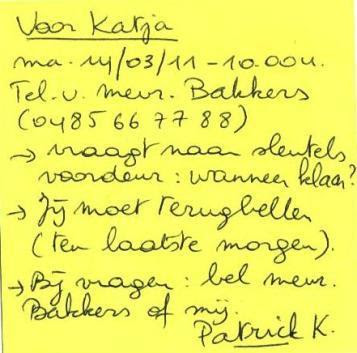 Voor Katja
ma. 14/03/11 - 10.00u.
Tel. v. mevr. Bakkers
(0485 66 77 88)
→ vraagt naar sleutels
voordeur : wanneer klaar?
→ Jij moet terugbellen
(ten laatste morgen).
→ Bij vragen : bel mevr.
Bakkers of mij.
Patrick K.